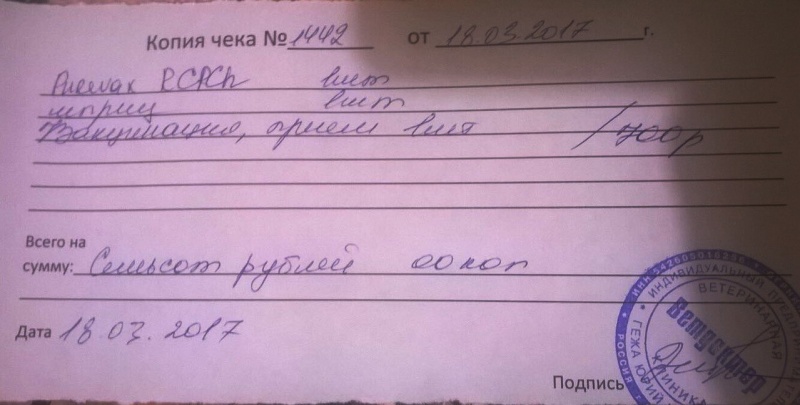 Копия чека № 1442 от 18.03.2017 г.
1шт
шприц 1шт
Вакцинация, прием 1шт / 700р
Всего на
сумму: Семьсот рублей 00 коп
Дата 18.03.2017
Подпись
ИНДИВИДУАЛЬНЫЙ
ВЕТЕРИНАРНАЯ
КЛИНИКА
ГЕЖА ЮРИЙ
РОССИЯ